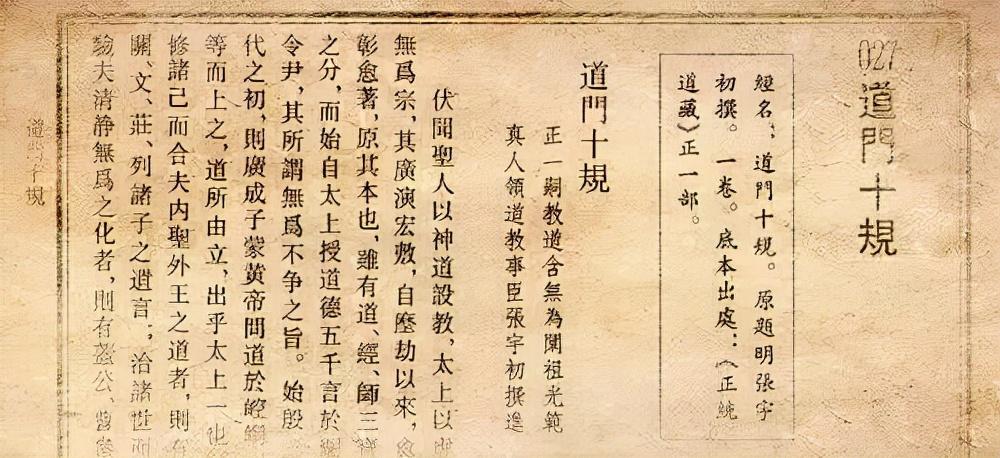 027
道門十規
經名：道門十規。原題明張宇
初撰。一卷。底本出處：《正統
道藏》正一部。
道門十規
正一嗣教道合無為闡祖光範
真人領道教事臣張宇初撰進
伏聞聖人以神道設教，太上以
無爲宗，其廣演宏敷，自歷劫以來，
彰愈著，原其本也，雖有道、經、師三
之分，而始自太上授道德五千言於
令尹，其所謂無爲不争之旨。始殷
代之初，則廣成子蒙黄帝問道於崆峒
等而上之，道所由立，出乎太上一也
修諸己而合夫内聖外王之道者，則有
關、文、莊、列諸子之遺言；治諸世
驗夫清静無爲之化者，則有蓋公、曹
道門十規